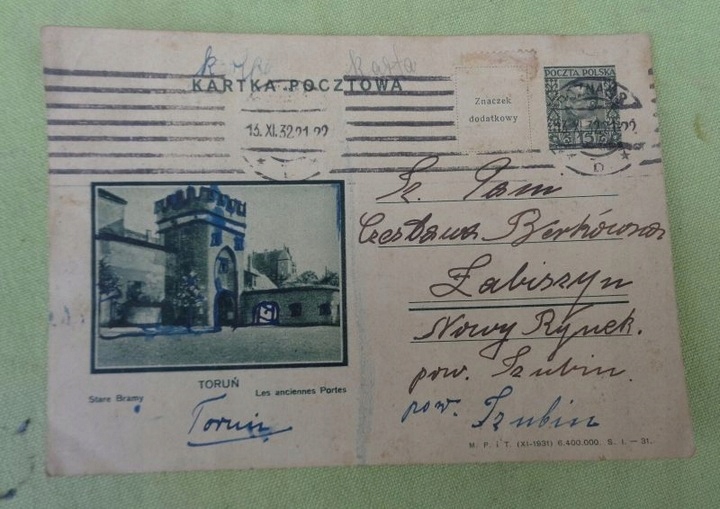 Karta
KARTKA POCZTOWA
Znaczek
dodatkowy
POCZTA POLSKA
13. XI. 32 21-22
Sz. Pani
Czesława Berkówna
Łabiszyn
Nowy Rynek.
pow. Szubin.
pow. Szubin
TORUŃ
Stare Bramy
Les anciennes Portes
Toruń
M. P. i T. (XI-1931) 6.400.000. S. I. — 31.